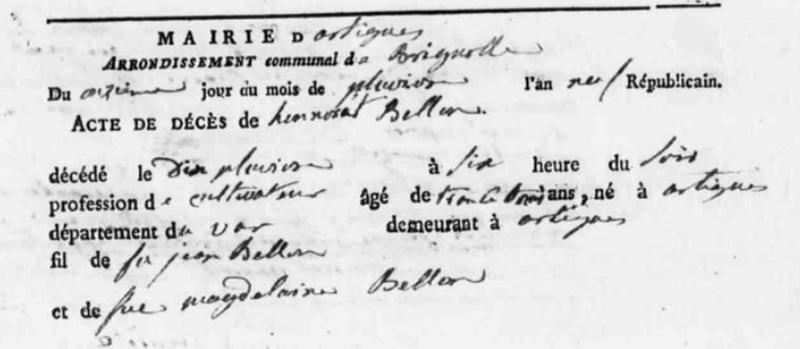 MAIRIE D artigues
ARRONDISSEMENT communal de Brignolle
Du onzieme jour du mois de pluviose l'an neuf Républicain.
ACTE DE DÉCÈS de honnorat Bellon.
décédé le Dix pluviose à Six heure du Soir
profession de cultivateur âgé de trente trois ans, né à artigues
département du var demeurant à artigues
fil de fu jean Bellon
et de fue magdelaine Bellon